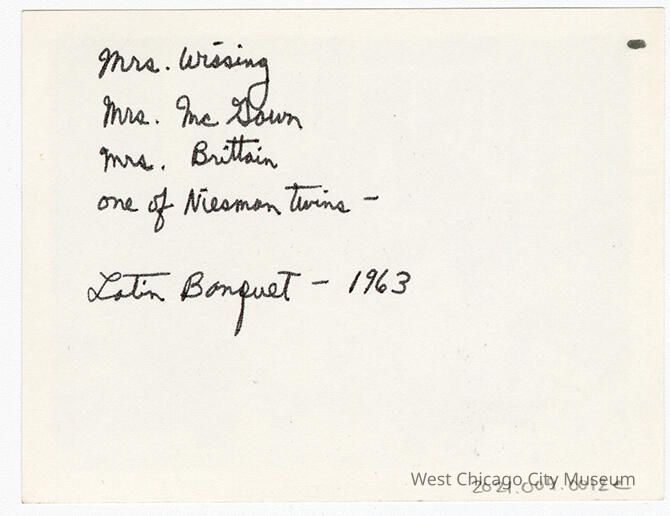 Mrs. Wissing
Mrs. Mc Gown
Mrs. Brittain
one of Niesman twins -
Latin Banquet - 1963
West Chicago City Museum